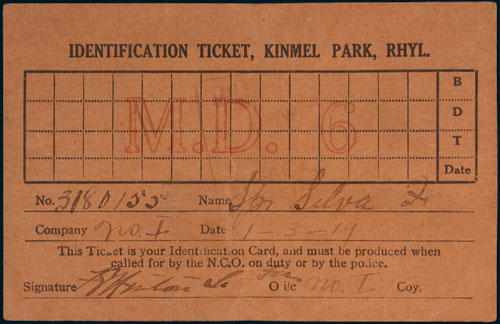 IDENTIFICATION TICKET, KINMEL PARK, RHYL.
B
D
M.D. 6
T
Date
No. 3180155 Name Spr Silva F
Company No. I Date 1-3-19
This Ticket is your Identification Card, and must be produced when
called for by the N.C.O. on duty or by the police.
Signature O i/c No. I Coy.